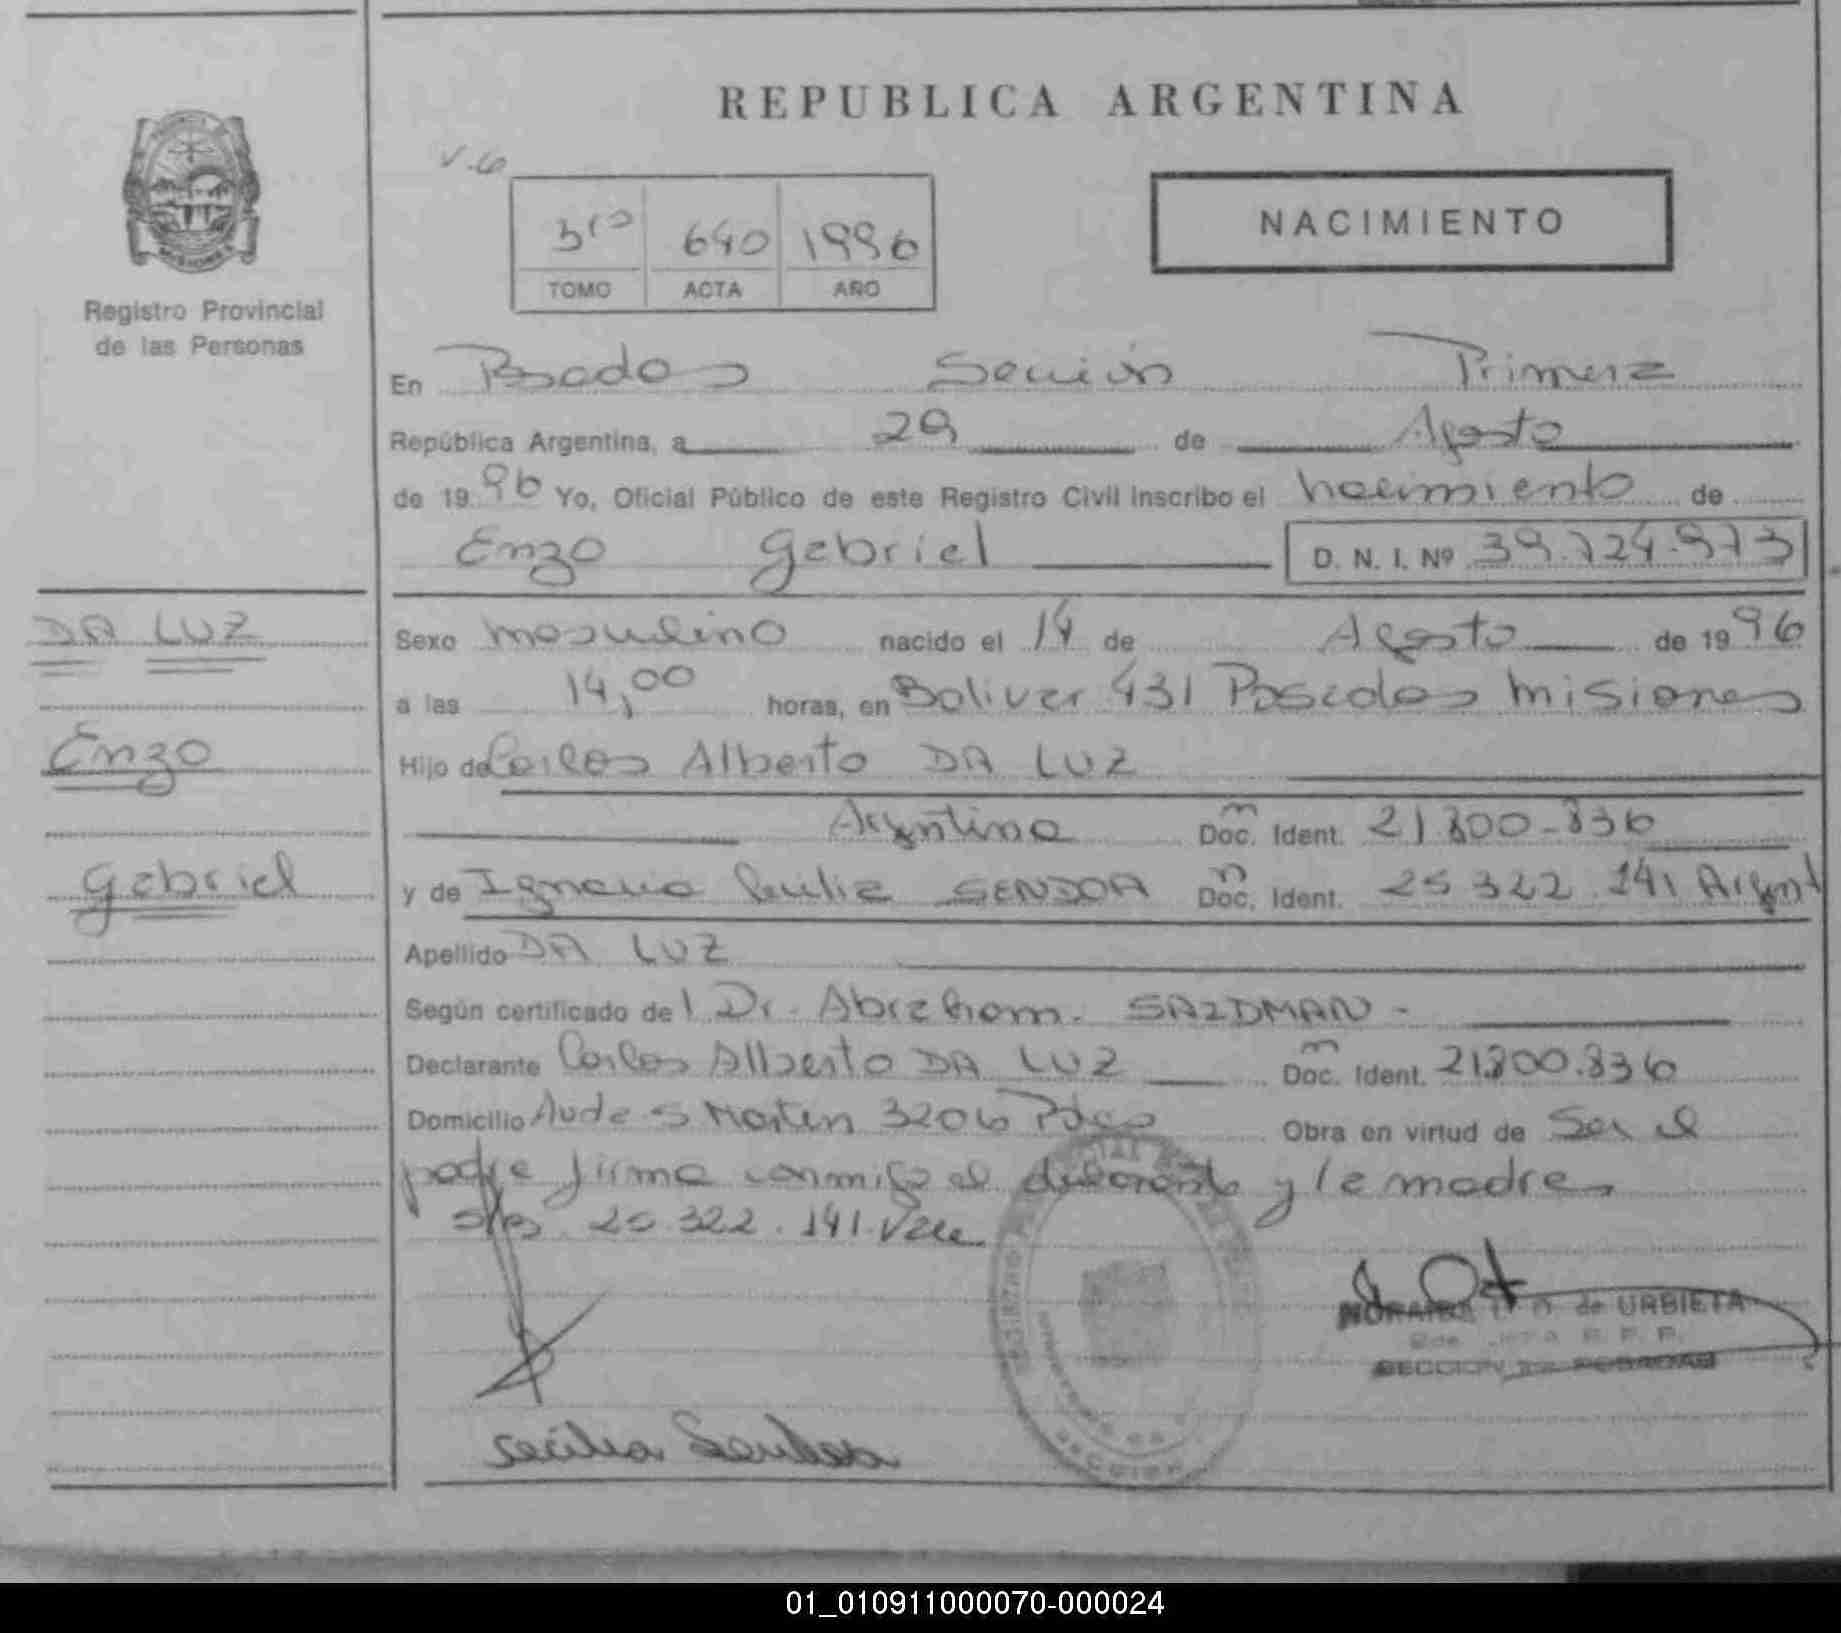 REPUBLICA ARGENTINA
V.6
3ro 640 1996
TOMO ACTA AÑO
NACIMIENTO
Registro Provincial
de las Personas
En Posadas Sección Primera
República Argentina, a 29 de Agosto
de 1996 Yo, Oficial Público de este Registro Civil inscribo el nacimiento de
Enzo Gabriel D. N. I. Nº 39.724.973
DA LUZ
Sexo masculino nacido el 14 de Agosto de 1996
a las 14,00 horas, en Bolivar 431 Posadas Misiones
Enzo
Hijo de Carlos Alberto DA LUZ
Argentino Doc. Ident. 21.800.836
Gabriel
y de Ignacia Cecilia SENDOA Doc. Ident. 25.322.141 Argent
Apellido DA LUZ
Según certificado del Dr. Abraham SAIDMAN -
Declarante Carlos Alberto DA LUZ Doc. Ident. 21.800.836
Domicilio Avda S Martin 3206 Pdas Obra en virtud de Ser el
padre firma conmigo el declarante y la madre
s/b 25.322.141. Vale
de URBIETA
SECCION POSADAS
Cecilia Sendoa
01_010911000070-000024